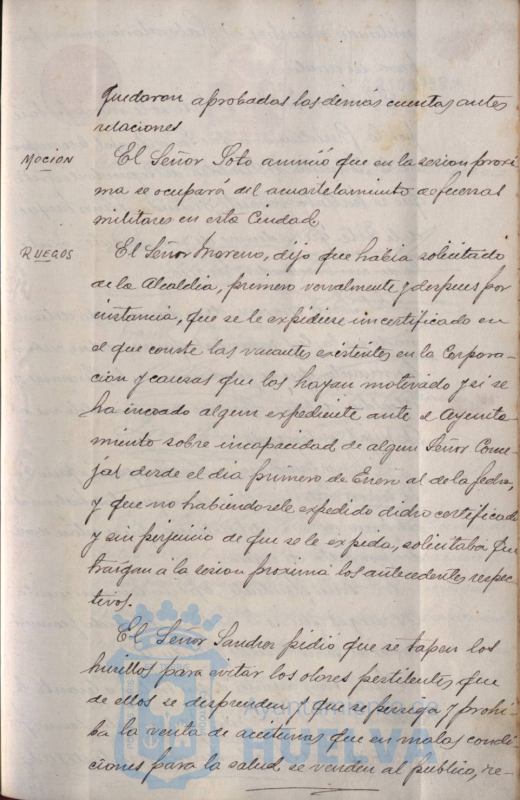 quedaron aprobadas las demás cuentas antes
relaciones
MOCIÓN
El Señor Soto anunció que en la sesion proxi
ma se ocupará del acuartelamiento de fuerzas
militares en esta Ciudad
RUEGOS
El Señor Moreno, dijo que habia solicitado
de la Alcaldia, primero vervalmente y despues por
instancia, que se le expidiese un certificado en
el que conste las vacantes existentes en la Corpora-
cion y causas que las hayan motivado y si se
ha incoado algun expediente ante el Ayunta-
miento sobre incapacidad de algun Señor Conce-
jal desde el dia primero de Enero al de la fecha,
y que no habiendosele expedido dicho certificado
y sin perjuicio de que se le expida, solicitaba que
traigan á la sesion proxima los antecedentes respec-
tivos.
El Señor Sandros pidió que se tapen los
husillos para evitar los olores pestilentes que
de ellos se desprenden y que se persiga y prohi-
ba la venta de aceitunas que en malas condi-
ciones para la salud se venden al publico, re-
Ayuntamiento
HUELVA